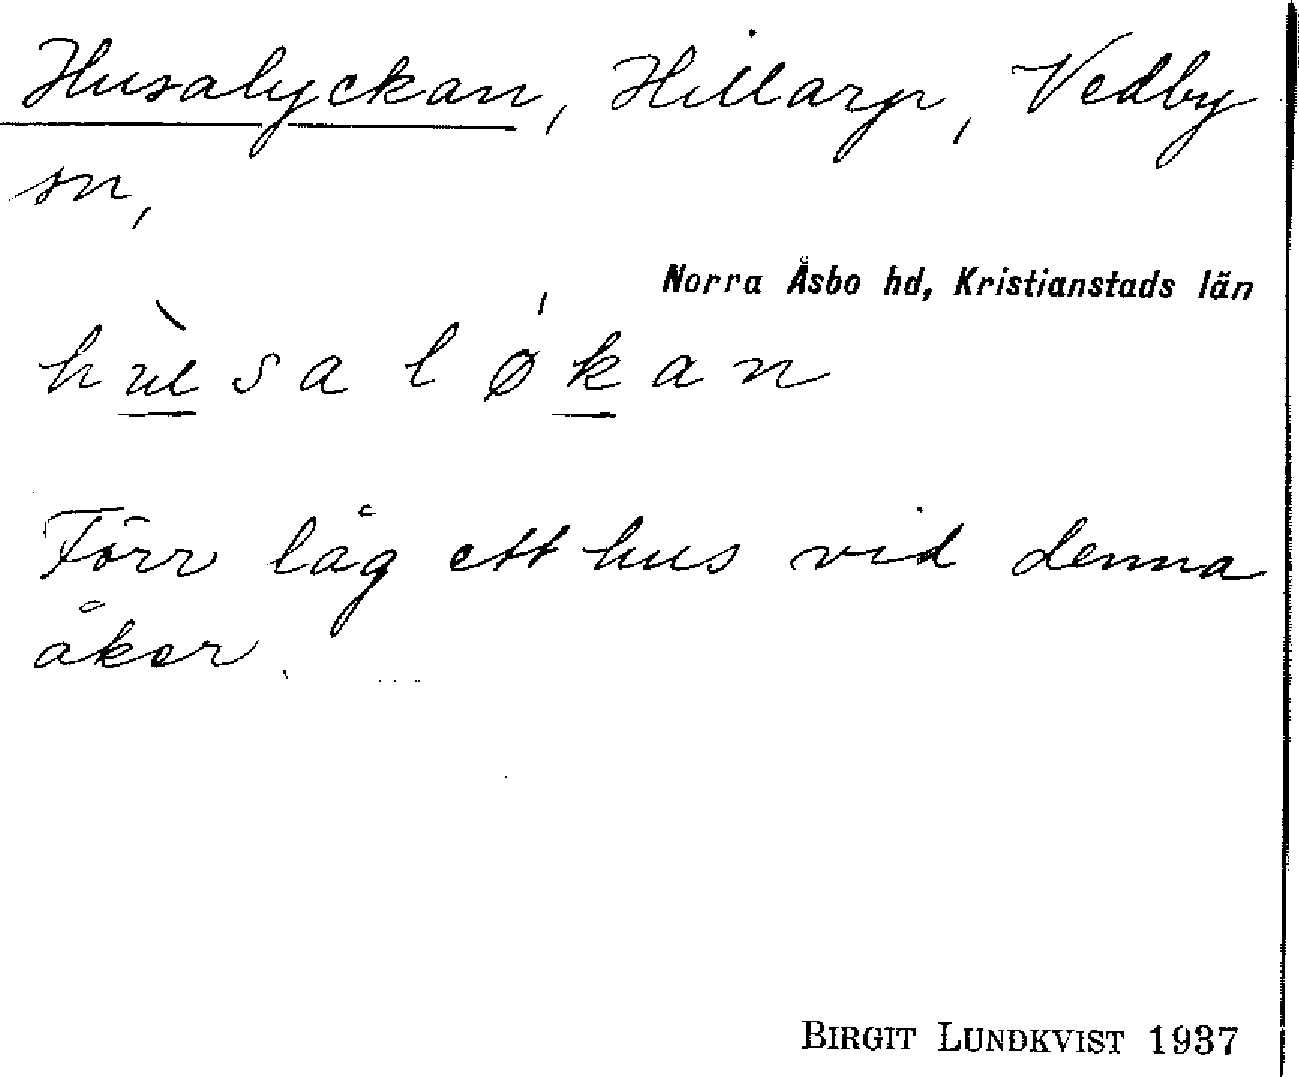 Husalyckan, Hillarp, Vedby
sn,
Norra Åsbo hd, Kristianstads län
hùsalǿkan
Förr låg ett hus vid denna
åker.
BIRGIT LUNDKVIST 1937